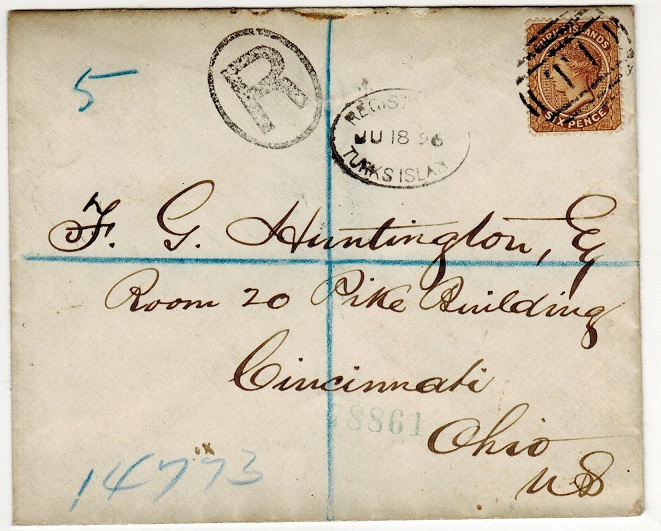 5
R
REGIST
JU 18 96
TURKS ISLAN
TURKS ISLANDS
SIX PENCE
F. G. Huntington, Esq
Room 20 Pike Building
Cincinnati
28861
Ohio
US
14773